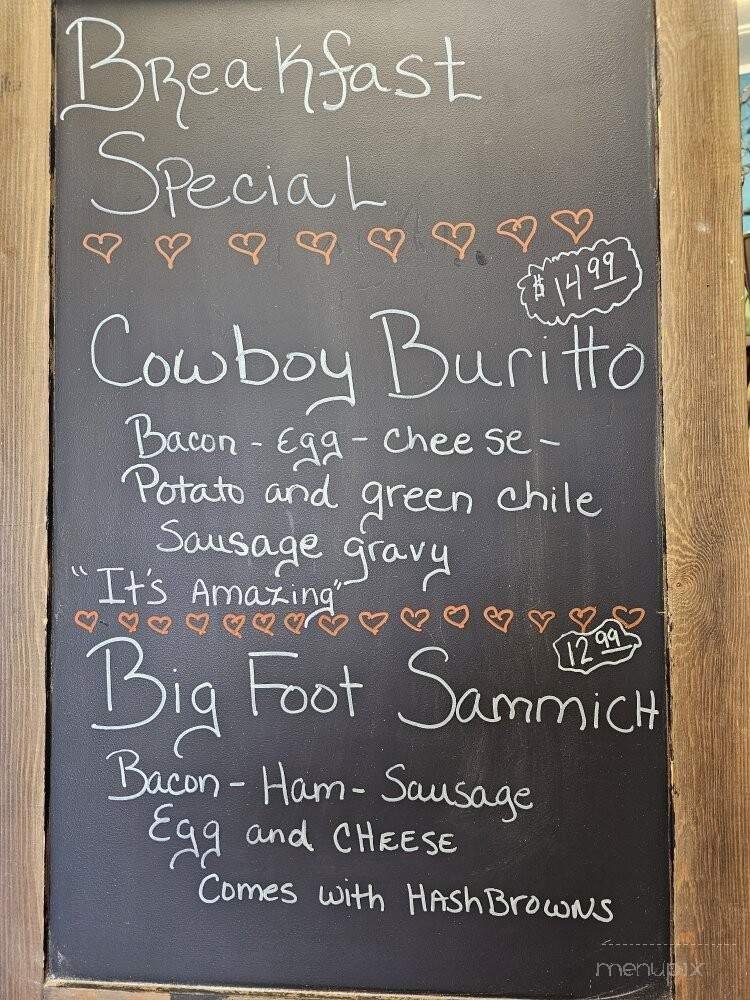 Breakfast
Special
$14.99
Cowboy Buritto
Bacon - Egg - cheese -
Potato and green chile
Sausage gravy
"It's Amazing"
12.99
Big Foot Sammich
Bacon - Ham - Sausage
Egg and CHEESE
Comes with HASHBROWNS
menupix